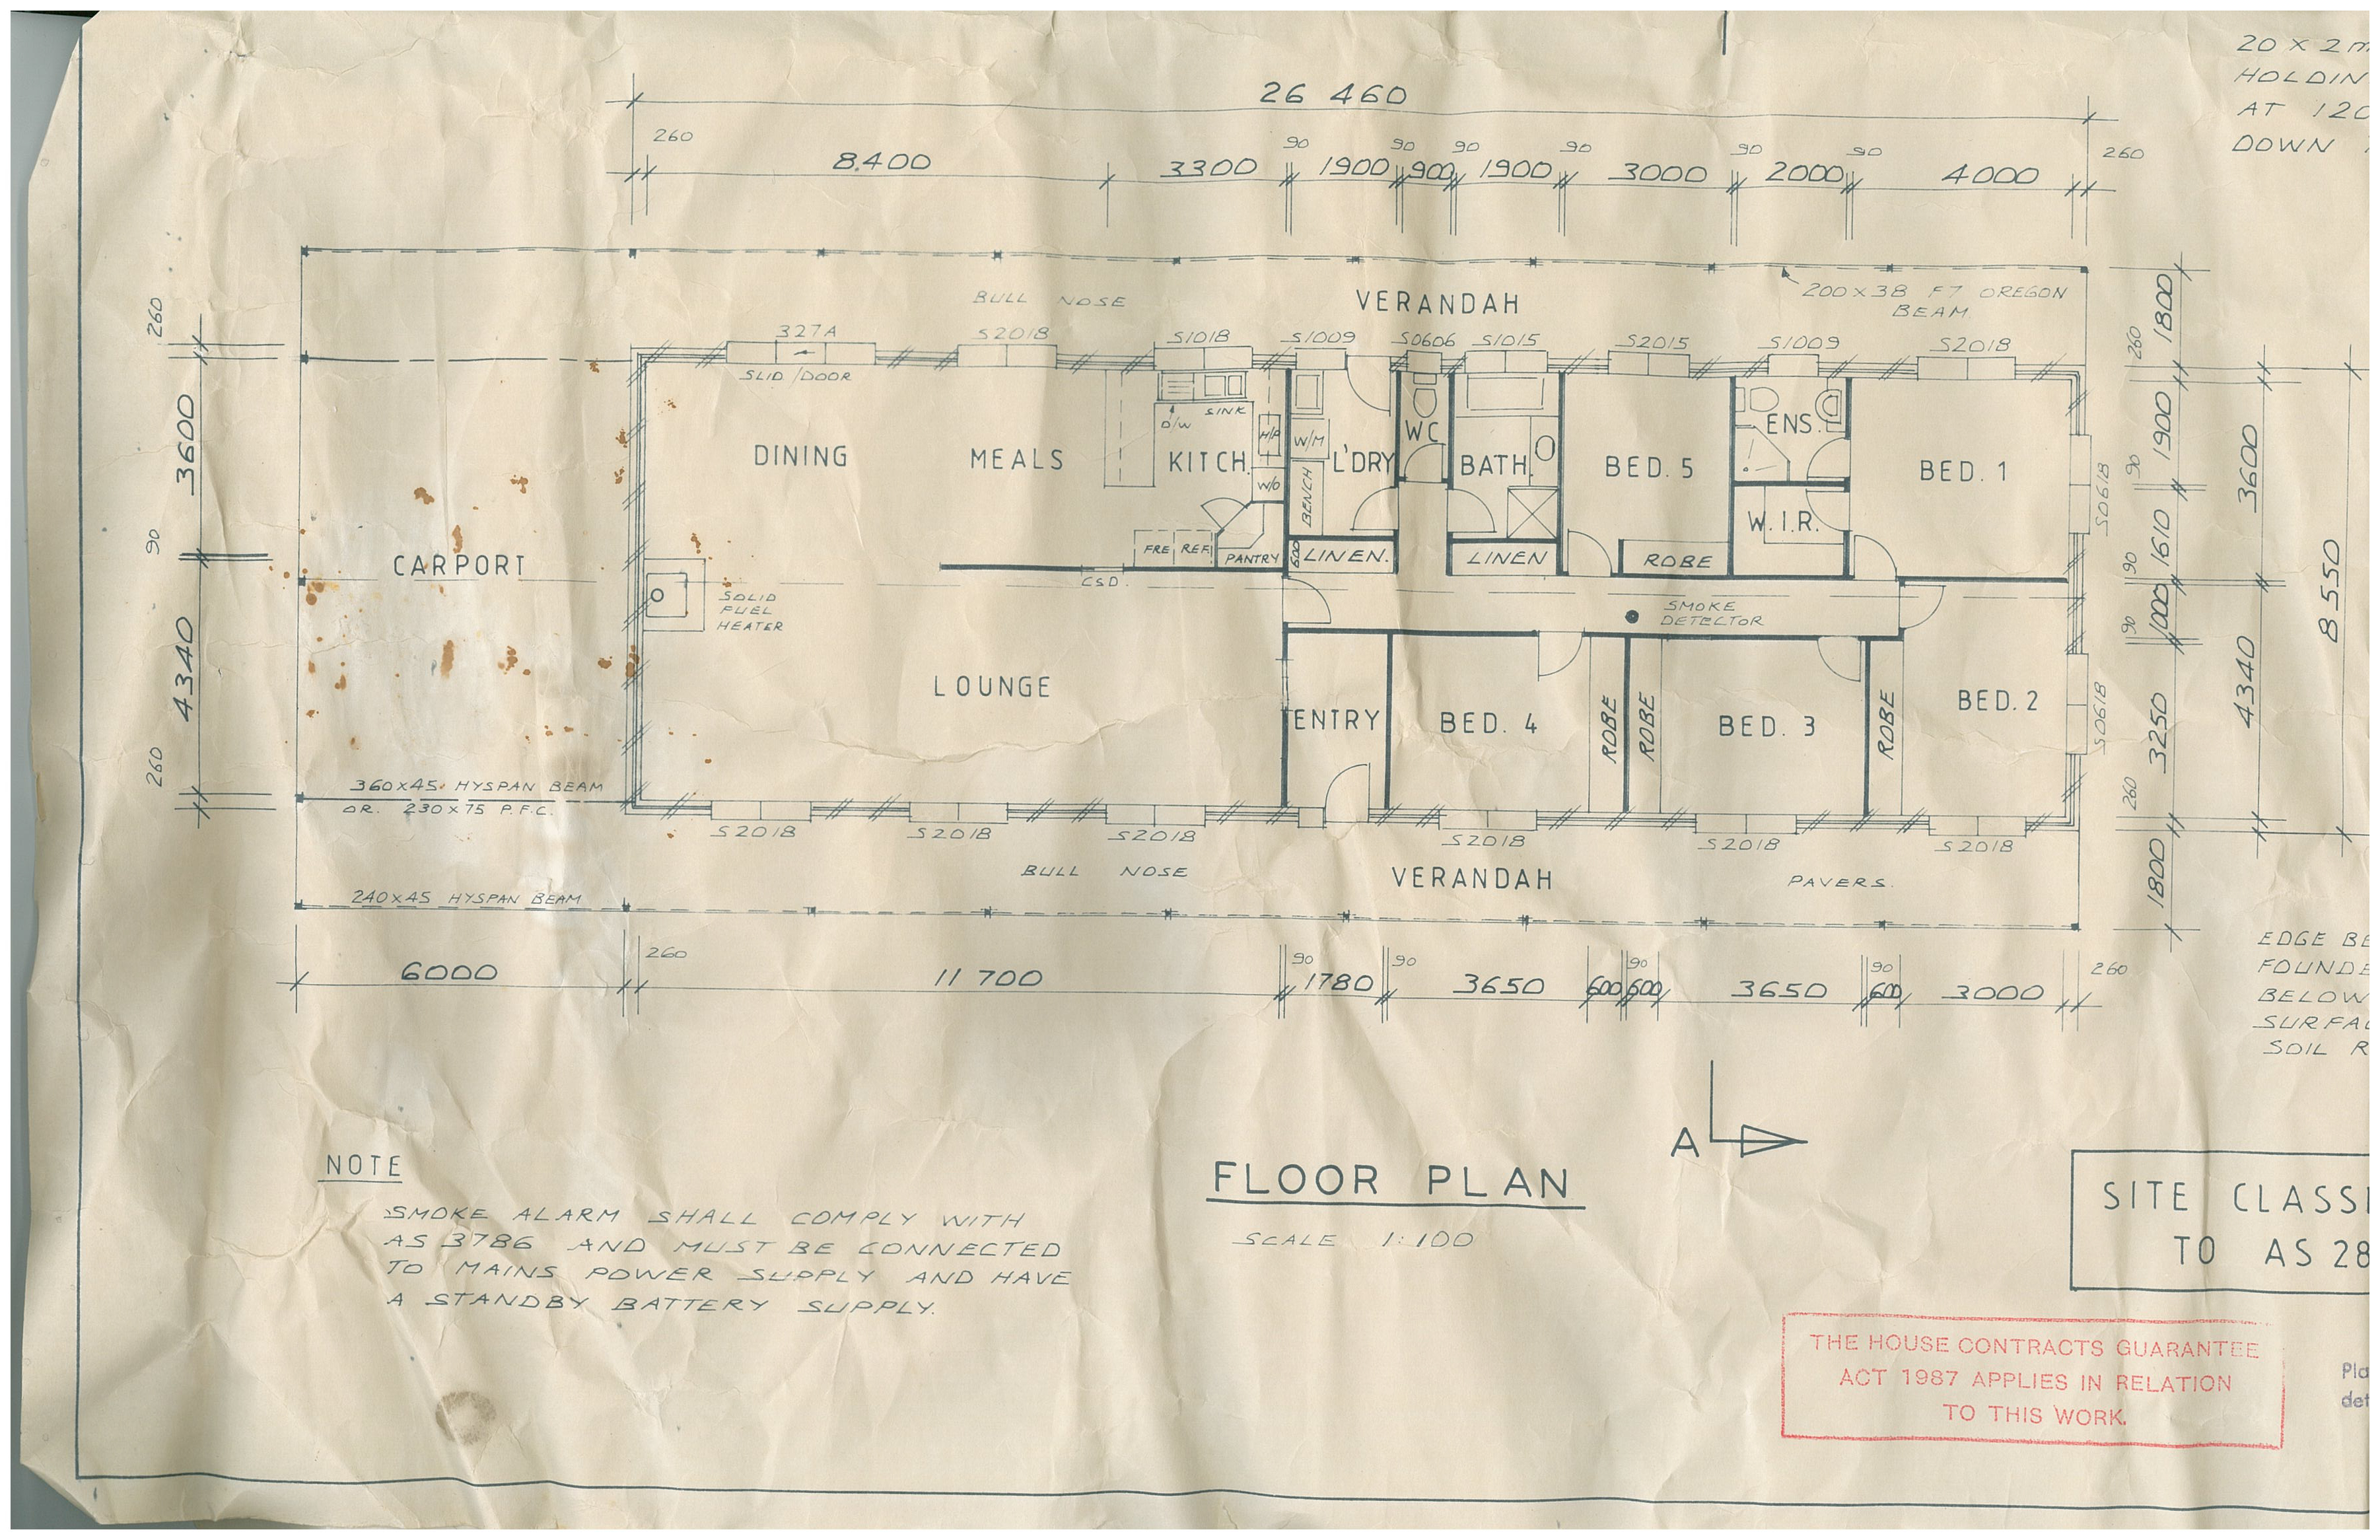 20 X 2
HOLDIN
AT 120
DOWN
26 460
260
8.400
3300
90
1900
90
900
90
1900
90
3000
90
2000
90
4000
260
BULL NOSE
VERANDAH
200X38 F7 OREGON
BEAM
327A
S2018
S1018
S1009
S0606
S1015
S2015
S1009
S2018
SLID/DOOR
SINK
D/W
H/P
W/M
WC
ENS.
DINING
MEALS
KITCH.
L'DRY
BATH.
BED. 5
BED. 1
W/O
BENCH
W.I.R.
S0618
CARPORT
FRE
REF.
PANTRY
600
LINEN.
LINEN
ROBE
C.S.D.
SOLID
FUEL
HEATER
SMOKE
DETECTOR
LOUNGE
ENTRY
BED. 4
ROBE
ROBE
BED. 3
ROBE
BED. 2
S0618
360X45 HYSPAN BEAM
OR. 230X75 P.F.C.
S2018
S2018
S2018
S2018
S2018
S2018
BULL NOSE
VERANDAH
PAVERS.
240X45 HYSPAN BEAM
260
3600
90
4340
260
1800
260
1900
90
1610
90
1000
90
3250
260
1800
3600
4340
8550
6000
260
11 700
90
1780
90
3650
600
90
600
3650
90
600
3000
260
EDGE BE
FOUNDE
BELOW
SURFAC
SOIL R
A
NOTE
SMOKE ALARM SHALL COMPLY WITH
AS 3786 AND MUST BE CONNECTED
TO MAINS POWER SUPPLY AND HAVE
A STANDBY BATTERY SUPPLY.
FLOOR PLAN
SCALE 1:100
SITE CLASSI
TO AS 28
THE HOUSE CONTRACTS GUARANTEE
ACT 1987 APPLIES IN RELATION
TO THIS WORK.
Pla
det